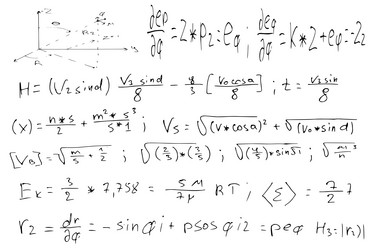 ∂eρ/∂φ = 2*ρ2 = eφ ; ∂eφ/∂φ = K*2 + eφ = -22
H = (V2 sind) V2 sind/8 - 8/3 - [V0 cosa/8] ; t = V2 sin/8
(x) = n*s/2 + m²*s³/s*1 ; Vs = √(V*cosa)² + √(V0*sind)
[VB] = √m/s + 1/2 ; √(2/5)*(2/5) ; √(4/5)*sinδi ; √m³/n³
Ek = 3/2 * 7,758 = 5M/7μ RT ; ⟨Σ⟩ = 7/2 7
r2 = dr/∂φ = - sin φi + ρsos φi2 = ρeφ H3 = |r2)|